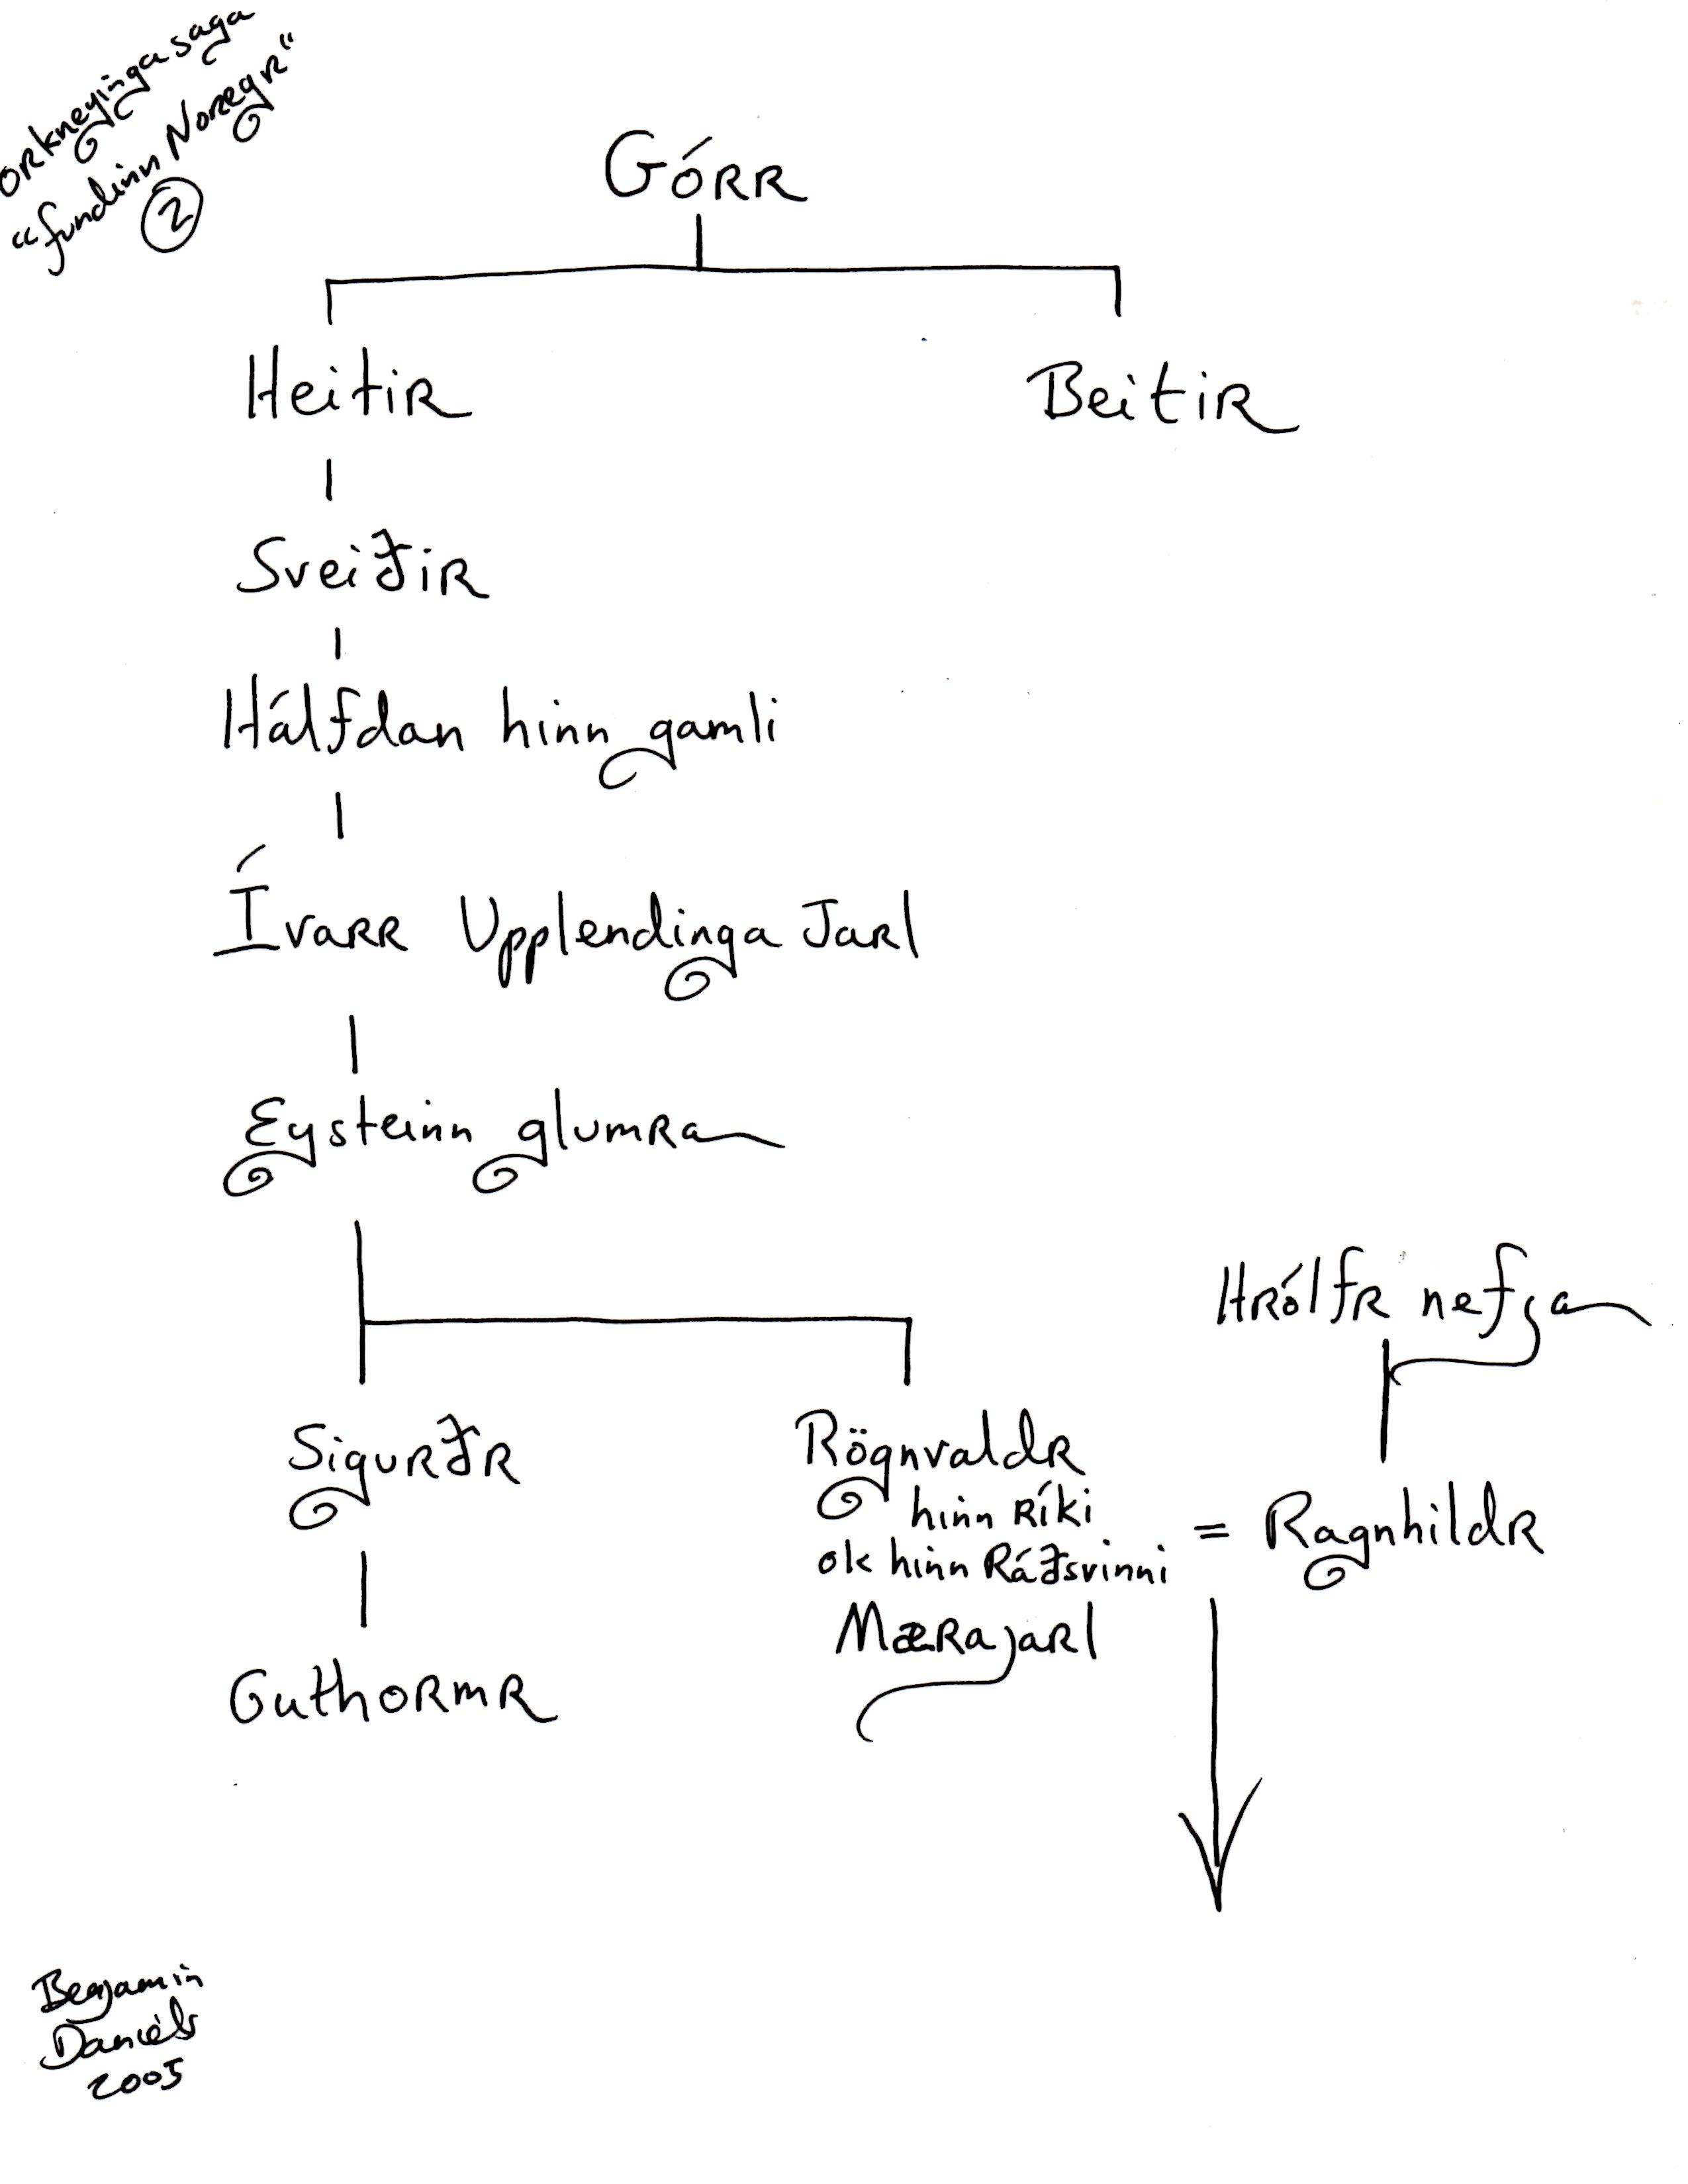 Orkneyjingasaga
“fundinn Noregr”
2
Górr
Heitir
Beitir
Sveiðir
Hálfdan hinn gamli
Ívarr Upplendinga Jarl
Eysteinn glumra
Hrólfr nefja
Sigurðr
Rögnvaldr
hinn Ríki
ok hinn Ráðsvinni
= Ragnhildr
Mærajarl
Guthormr
Benjamin
Daniels
2005